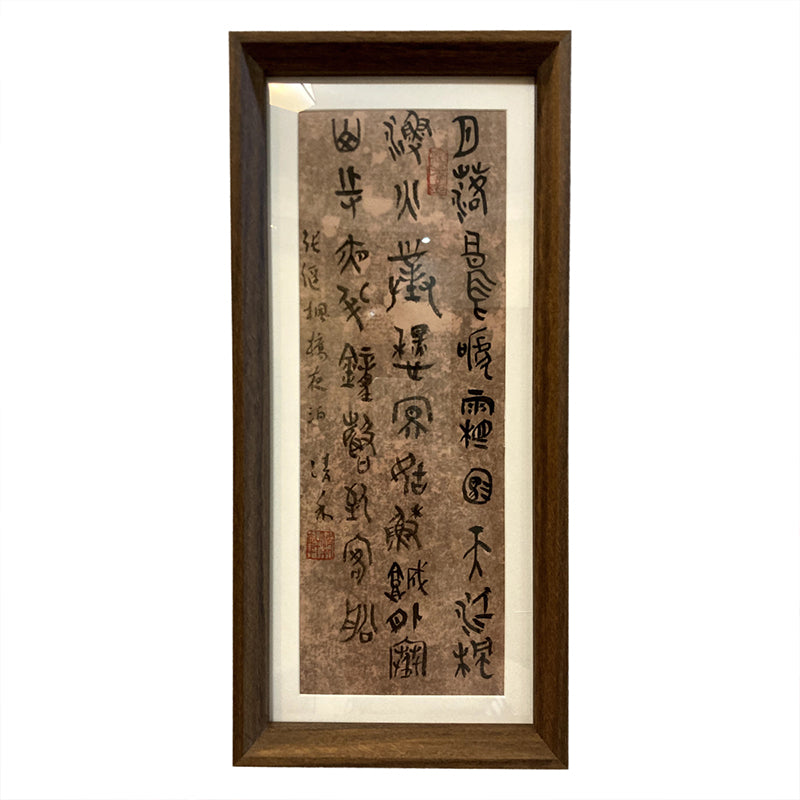 月落烏啼霜滿天江楓
漁火對愁眠姑蘇城外寒
山寺夜半鐘聲到客船
張繼楓橋夜泊